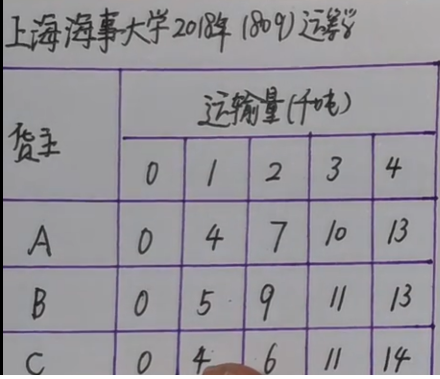 上海海事大学2018年(809)运筹学
货主
运输量(千吨)
0 1 2 3 4
A 0 4 7 10 13
B 0 5 9 11 13
C 0 4 6 11 14